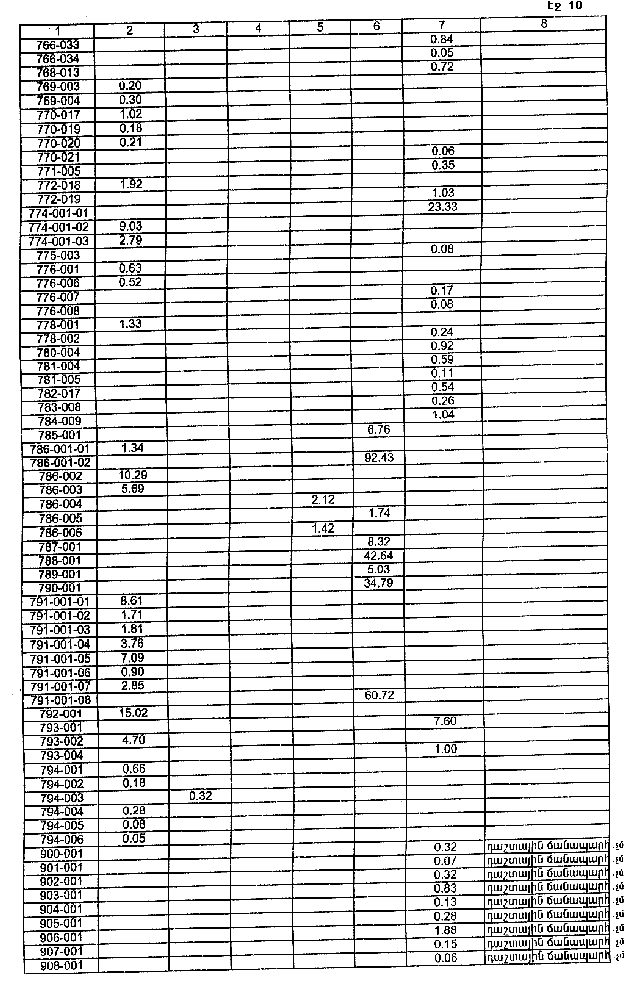 Էջ 10
1 2 3 4 5 6 7 8
766-033 0.84
766-034 0.05
768-013 0.72
769-003 0.20
769-004 0.30
770-017 1.02
770-019 0.18
770-020 0.21
770-021 0.06
771-005 0.35
772-018 1.92
772-019 1.03
774-001-01 23.33
774-001-02 9.03
774-001-03 2.79
775-003 0.08
776-001 0.63
776-006 0.52
776-007 0.17
776-008 0.08
778-001 1.33
778-002 0.24
780-004 0.92
781-004 0.59
781-005 0.11
782-017 0.54
783-008 0.26
784-009 1.04
785-001 6.76
786-001-01 1.34
786-001-02 92.43
786-002 10.29
786-003 5.69
786-004 2.12
786-005 1.74
786-006 1.42
787-001 8.32
788-001 42.64
789-001 5.03
790-001 34.79
791-001-01 8.61
791-001-02 1.71
791-001-03 1.81
791-001-04 3.76
791-001-05 7.09
791-001-06 0.90
791-001-07 2.85
791-001-08 60.72
792-001 15.02
793-001 7.60
793-002 4.70
793-004 1.00
794-001 0.66
794-002 0.18
794-003 0.32
794-004 0.28
794-005 0.08
794-006 0.05
900-001 0.32 դաշտային ճանապարհ
901-001 0.07 դաշտային ճանապարհ
902-001 0.32 դաշտային ճանապարհ
903-001 0.83 դաշտային ճանապարհ
904-001 0.13 դաշտային ճանապարհ
905-001 0.28 դաշտային ճանապարհ
906-001 1.88 դաշտային ճանապարհ
907-001 0.15 դաշտային ճանապարհ
908-001 0.06 դաշտային ճանապարհ